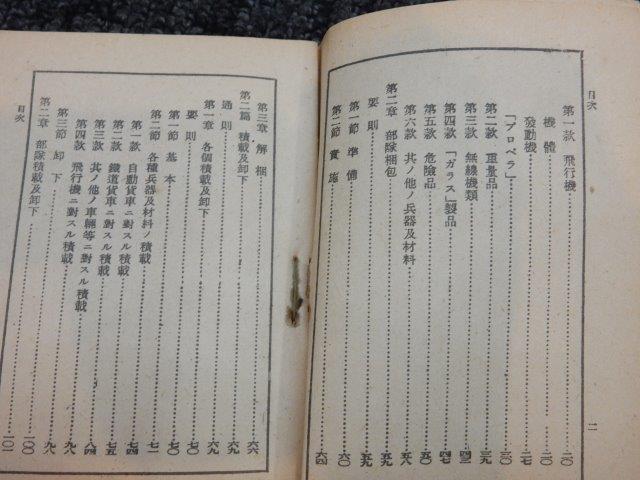 目次
第一款 飛行機……二〇
機體……二〇
發動機……二七
「プロペラ」……三〇
第二款 重量品……三九
第三款 無線機類……四三
第四款 「ガラス」製品……四七
第五款 危險品……五〇
第六款 其ノ他ノ兵器及材料……五八
第二章 部隊梱包……五九
要則……五九
第一節 準備……六〇
第二節 實施……六四
二
第三章 解梱……六六
第二篇 積載及卸下
通則……六九
第一章 各個積載及卸下……六九
要則……七〇
第一節 基本……七〇
第二節 各種兵器及材料ノ積載……七一
第一款 自動貨車ニ對スル積載……七四
第二款 鐵道貨車ニ對スル積載……七五
第三款 其ノ他ノ車輛等ニ對スル積載……八四
第四款 飛行機ニ對スル積載……九八
第三節 卸下……九八
第二章 部隊積載及卸下……一〇〇
一〇一
目次